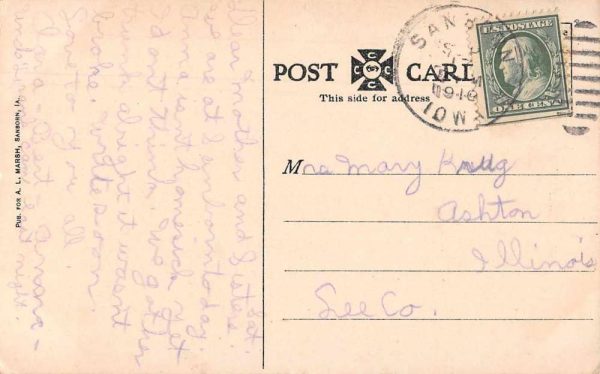 Sat.
Dear Mother and Sisters.
We are at Sanborn today.
Irma isn't homesick yet
I don't think. We got her
trunk alright it wasn't
broke. Write soon.
Love to you all
Irma
PUB. FOR A. L. MARSH, SANBORN, IA.
POST CARD
CCCC
This side for address
SANBORN
1910
IOWA
U.S. POSTAGE
ONE CENT
Mrs Mary Krug
Ashton
Illinois
Lee Co.